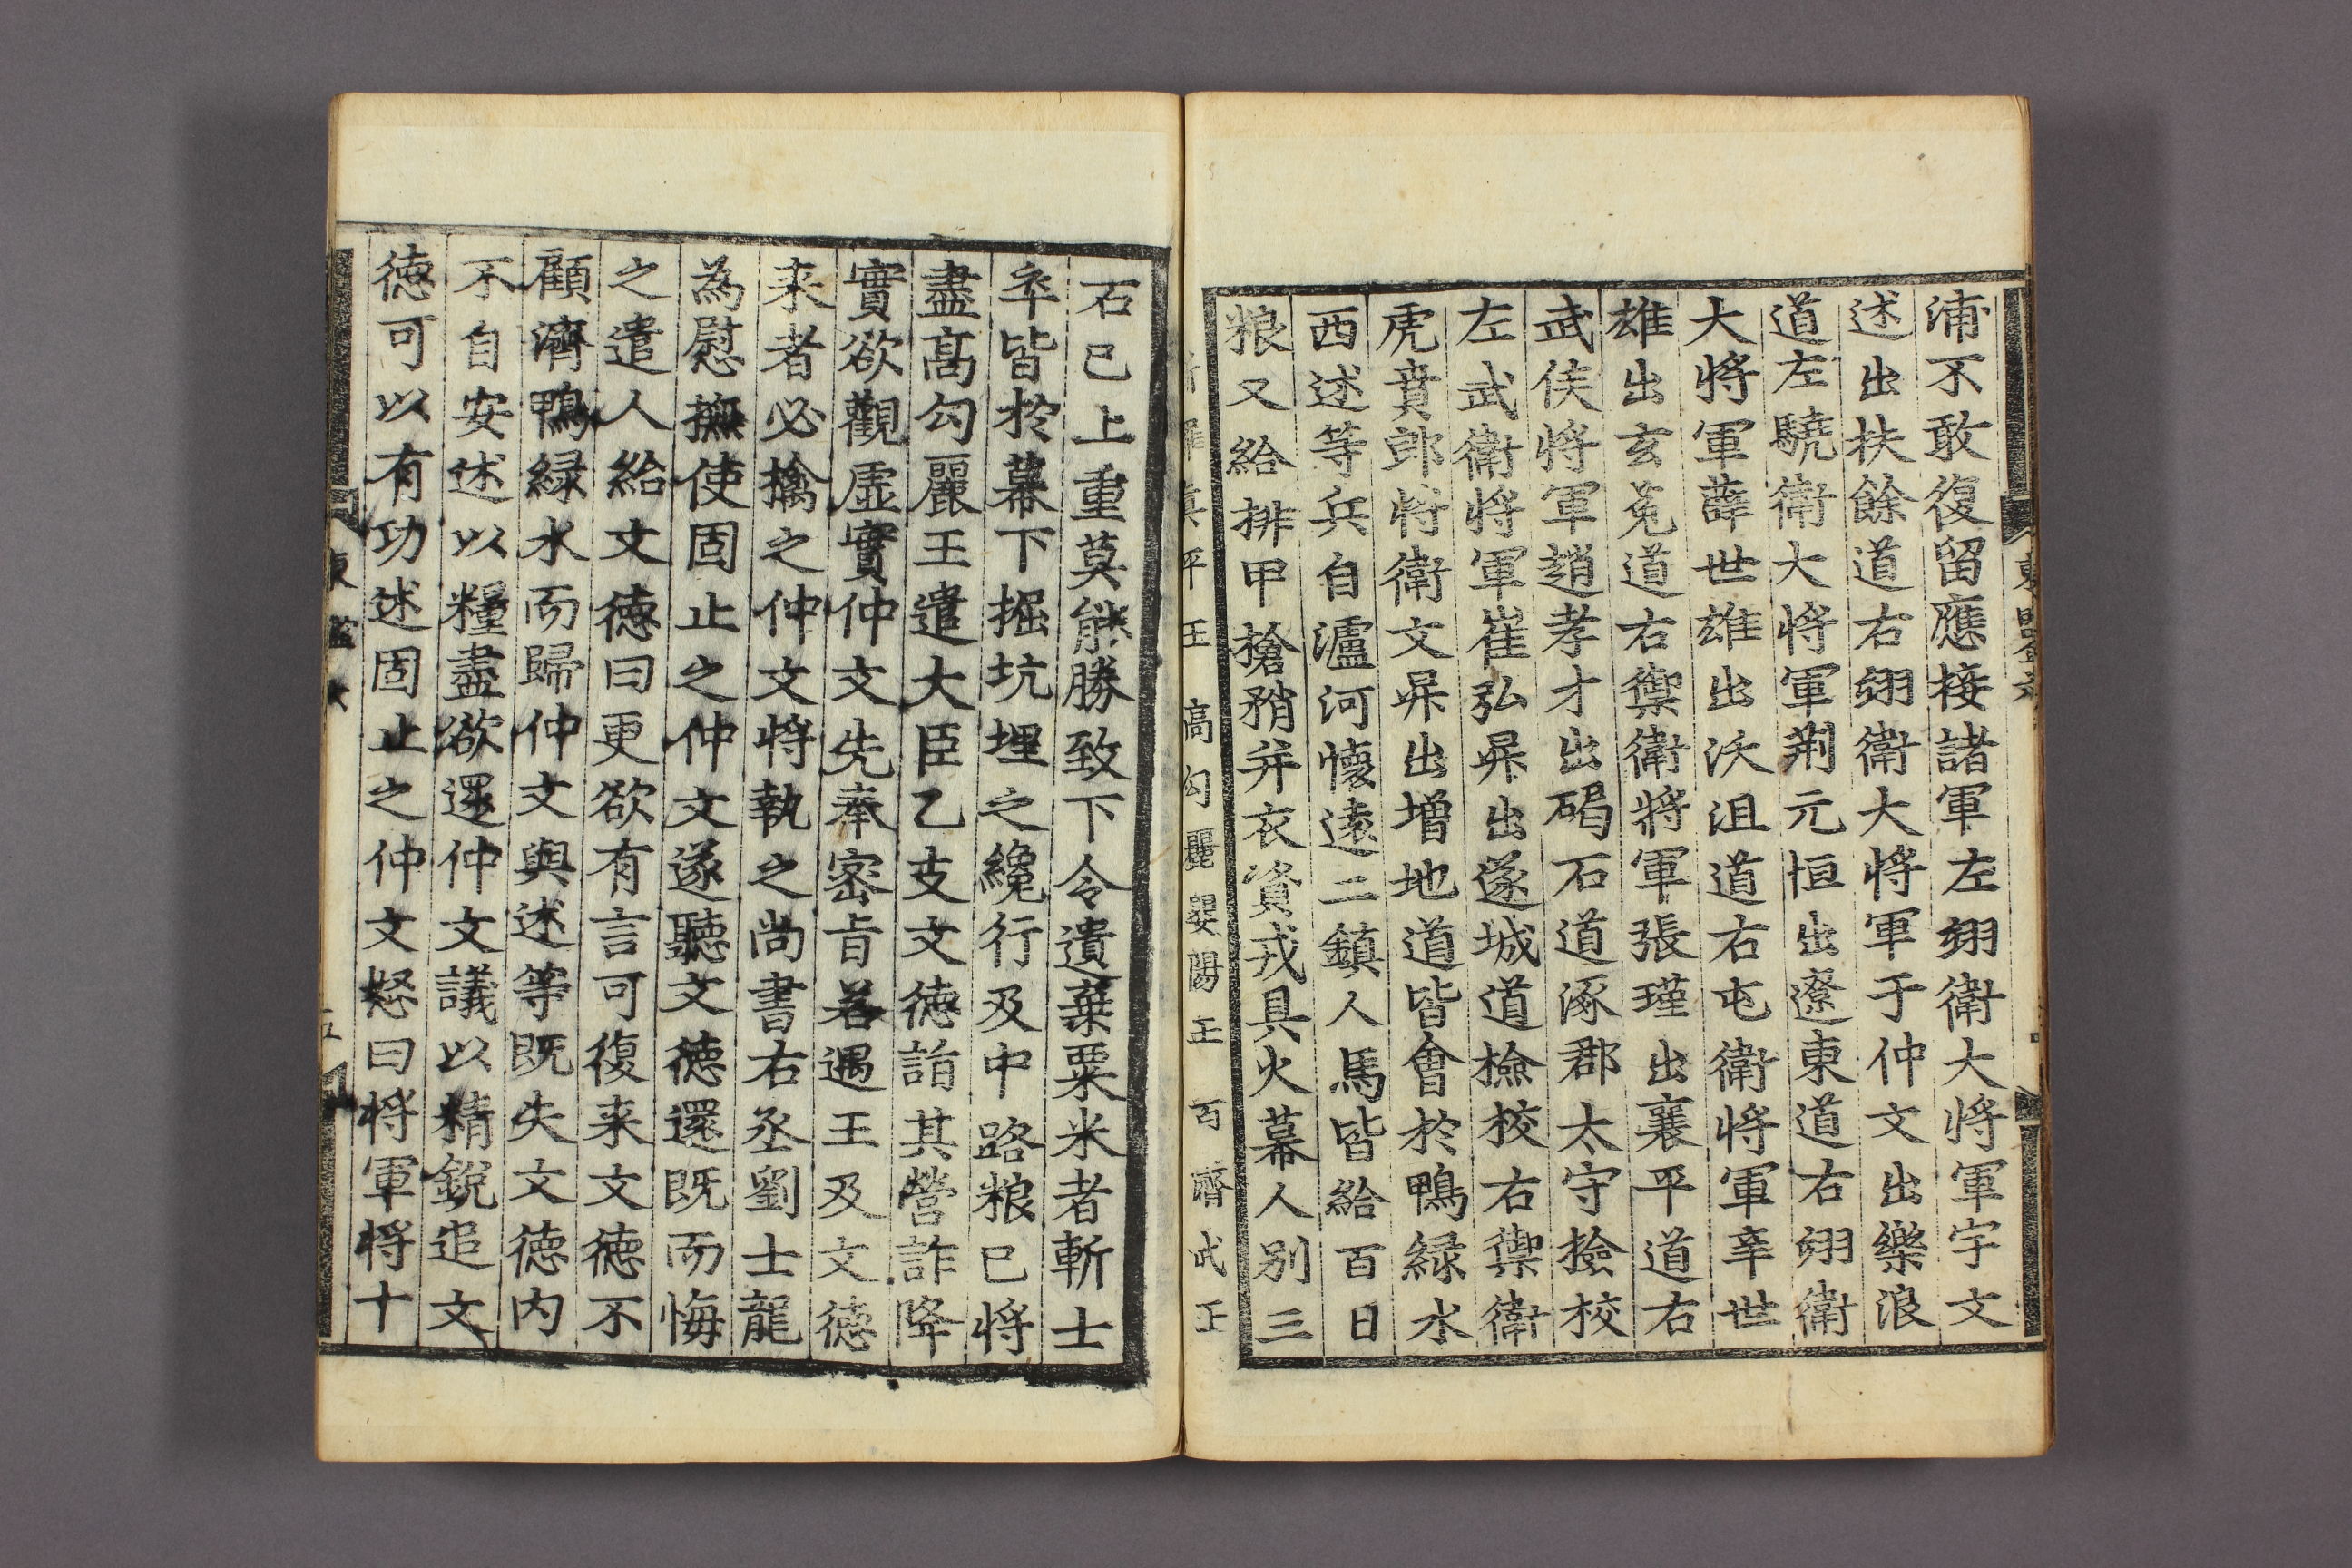 浦不敢復留應接諸軍左翊衛大將軍宇文
述出扶餘道右翊衛大將軍于仲文出樂浪
道左驍衛大將軍荆元恒出遼東道右翊衛
大將軍薛世雄出沃沮道右屯衛將軍辛世
雄出玄菟道右禦衛將軍張瑾出襄平道右
武侯將軍趙孝才出碣石道涿郡太守撿校
左武衛將軍崔弘昇出遂城道檢校右禦衛
虎賁郎將衛文昇出增地道皆會於鴨緑水
西述等兵自瀘河懷遠二鎮人馬皆給百日
粮又給排甲槍矟并衣資戎具火幕人別三
新羅真平王 高勾麗嬰陽王 百濟武王
石已上重莫能勝致下令遺棄粟米者斬士
卒皆於幕下掘坑埋之纔行及中路粮已將
盡高勾麗王遣大臣乙支文德詣其營詐降
實欲觀虛實仲文先奉密旨若遇王及文德
来者必擒之仲文將執之尚書右丞劉士龍
為慰撫使固止之仲文遂聽文德還既而悔
之遣人給文德曰更欲有言可復来文德不
顧濟鴨緑水而歸仲文與述等既失文德内
不自安述以糧盡欲還仲文議以精銳追文
德可以有功述固止之仲文怒曰將軍將十
東監